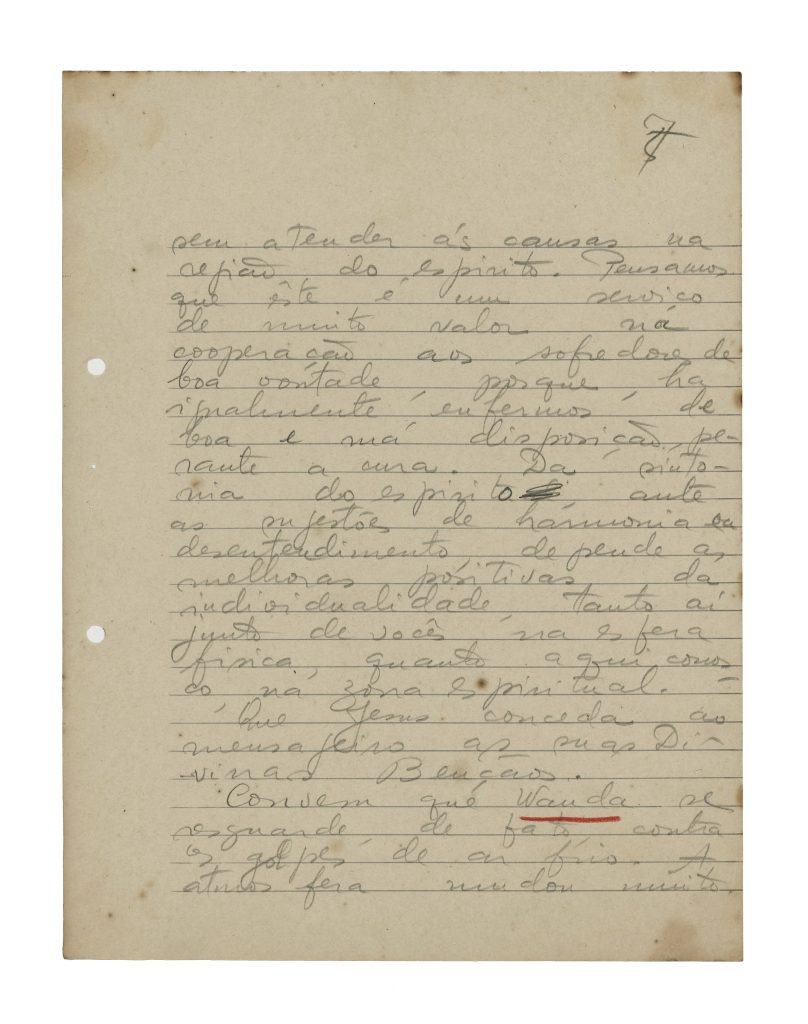 7
sem atender ás causas na
região do espirito. Pensamos
que êste é um serviço
de muito valor na
cooperação aos sofredores de
boa vontade, porque ha
igualmente enfermos de
boa e má disposição, pe-
rante a cura. Da sinto-
nia do espirito, ante
as sugestões de harmonia ou
desentendimento, depende as
melhoras positivas da
individualidade, tanto aí
junto de vocês na esfera
fisica, quanto aqui conos
co, na zona espiritual. –
Que Jesus conceda ao
mensageiro as suas Di-
vinas Bençãos.
Convem que Wanda se
resguarde, de fato, contra
os golpes de ar frio. A
atmosfera mudou muito.